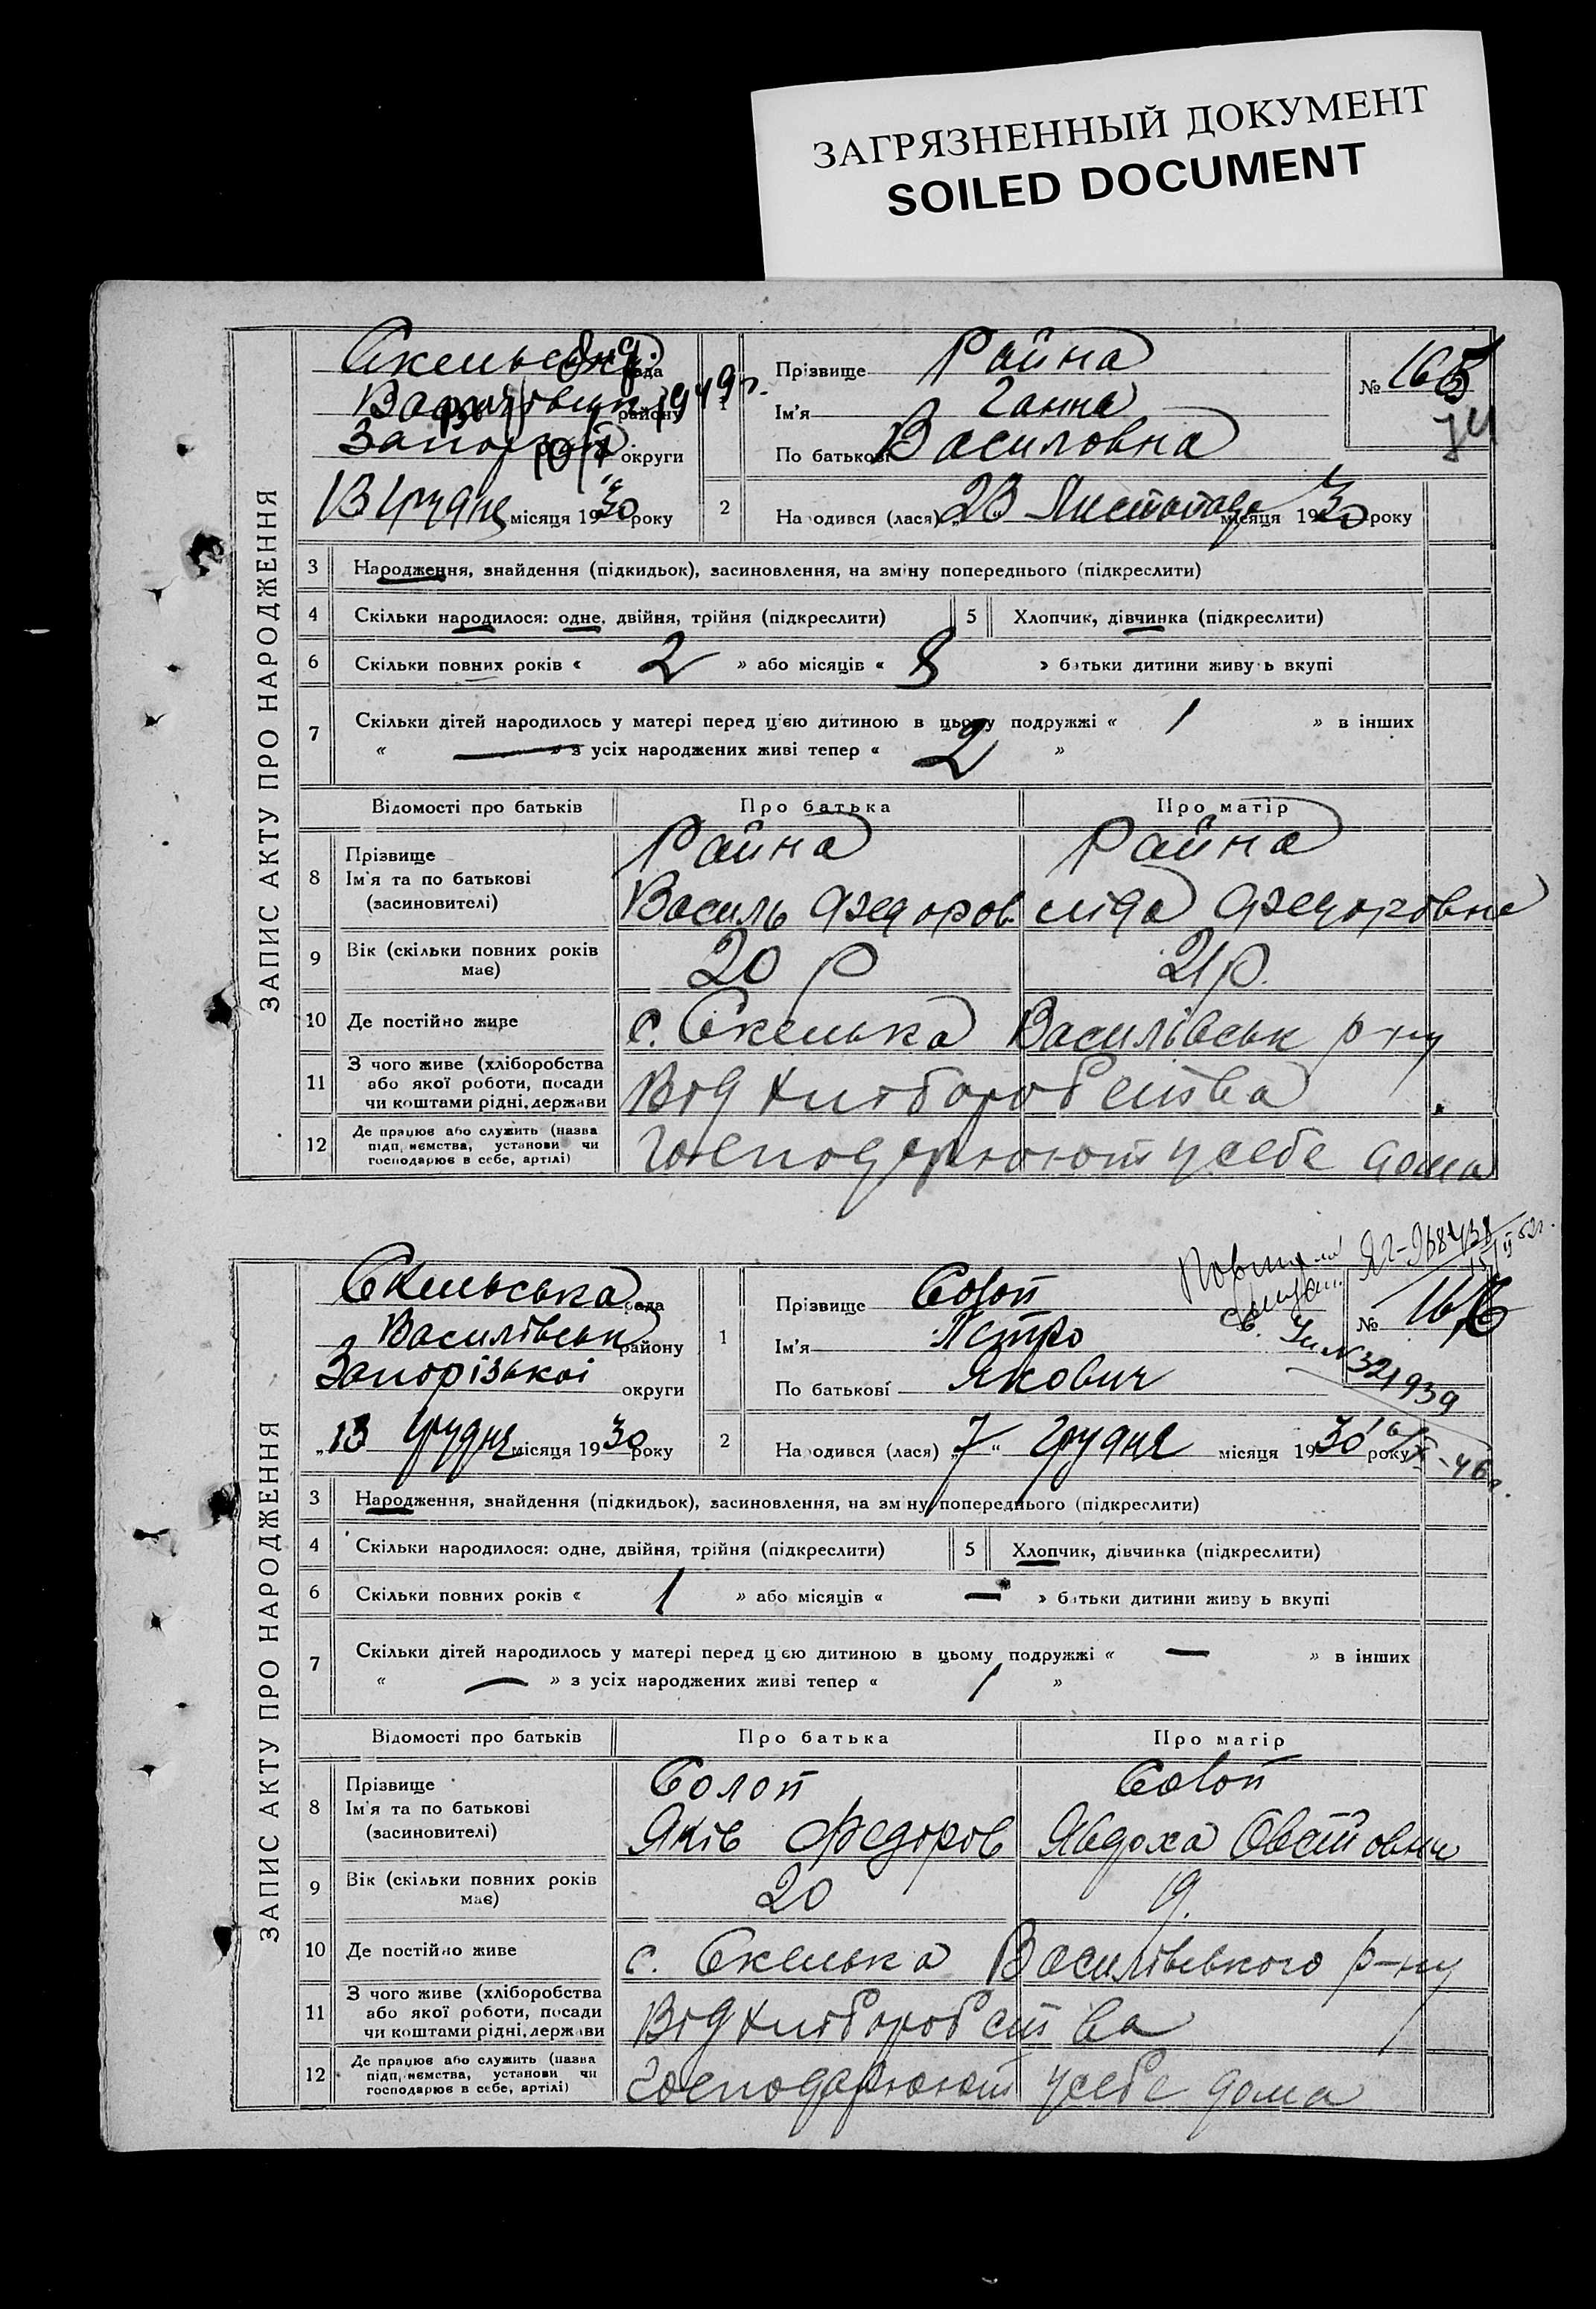 ЗАГРЯЗНЕННЫЙ ДОКУМЕНТ
SOILED DOCUMENT
ЗАПИС АКТУ ПРО НАРОДЖЕННЯ
рада
району
Запоріз округи
13 грудня місяця 1930 року
1
Прізвище Райна
Ім'я Ганна
По батькові Василовна
№ 165
2
Народився (лася) „23“ Листопада місяця 1930 року
3 Народження, знайдення (підкидьок), засиновлення, на зміну попереднього (підкреслити)
4 Скільки народилося: одне, двійня, трійня (підкреслити)
5 Хлопчик, дівчинка (підкреслити)
6 Скільки повних років « 2 » або місяців « 8 » батьки дитини живуть вкупі
7 Скільки дітей народилось у матері перед цією дитиною в цьому подружжі « 1 » в інших
« — » з усіх народжених живі тепер « 2 »
Відомості про батьків Про батька Про матір
8 Прізвище
Ім'я та по батькові
(засиновителі)
Райна Райна
Василь Федоров Ліда Федоровна
9 Вік (скільки повних років має) 20 р 21 р.
10 Де постійно живе с. Скелька Васильівськ р-ну
11 З чого живе (хліборобства
або якої роботи, посади
чи коштами рідні, держави
Від хліборобства
12 Де працює або служить (назва
підприємства, установи чи
господарює в себе, артілі)
Господарюют у себе дома
ЗАПИС АКТУ ПРО НАРОДЖЕННЯ
Скельська рада
Василівськ району
Запорізькоі округи
„13 грудня місяця 1930 року
1
Прізвище Солоп
Ім'я Петро
По батькові Якович
№ 166
№321939
2
Народився (лася) „7“ грудня місяця 1930 року
3 Народження, знайдення (підкидьок), засиновлення, на зміну попереднього (підкреслити)
4 Скільки народилося: одне, двійня, трійня (підкреслити)
5 Хлопчик, дівчинка (підкреслити)
6 Скільки повних років « 1 » або місяців « — » батьки дитини живуть вкупі
7 Скільки дітей народилось у матері перед цією дитиною в цьому подружжі « — » в інших
« — » з усіх народжених живі тепер « 1 »
Відомості про батьків Про батька Про матір
8 Прізвище
Ім'я та по батькові
(засиновителі)
Солоп Солоп
Яків Федоров Явдоха
9 Вік (скільки повних років має) 20 19.
10 Де постійно живе с. Скелька Василівського р-ну
11 З чого живе (хліборобства
або якої роботи, посади
чи коштами рідні, держави
Від хліборобства
12 Де працює або служить (назва
підприємства, установи чи
господарює в себе, артілі)
Господарюют у себе дома